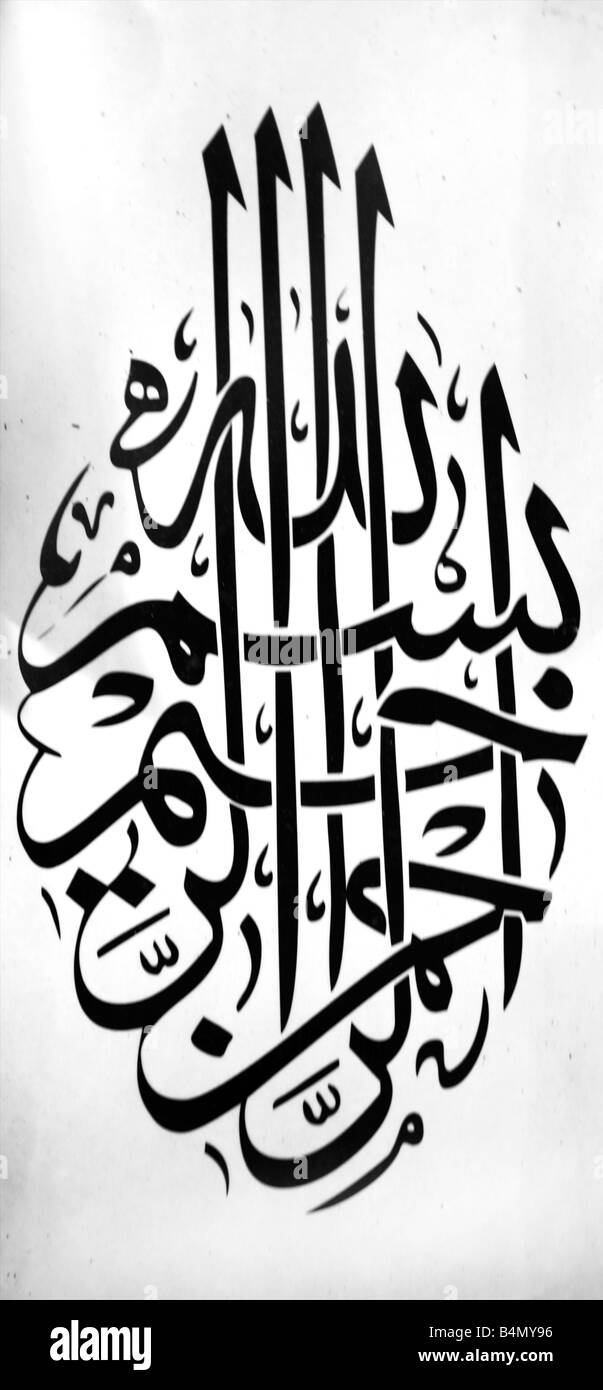 بسم الله الرحمن الرحيم
alamy
Image ID: B4MY96
www.alamy.com